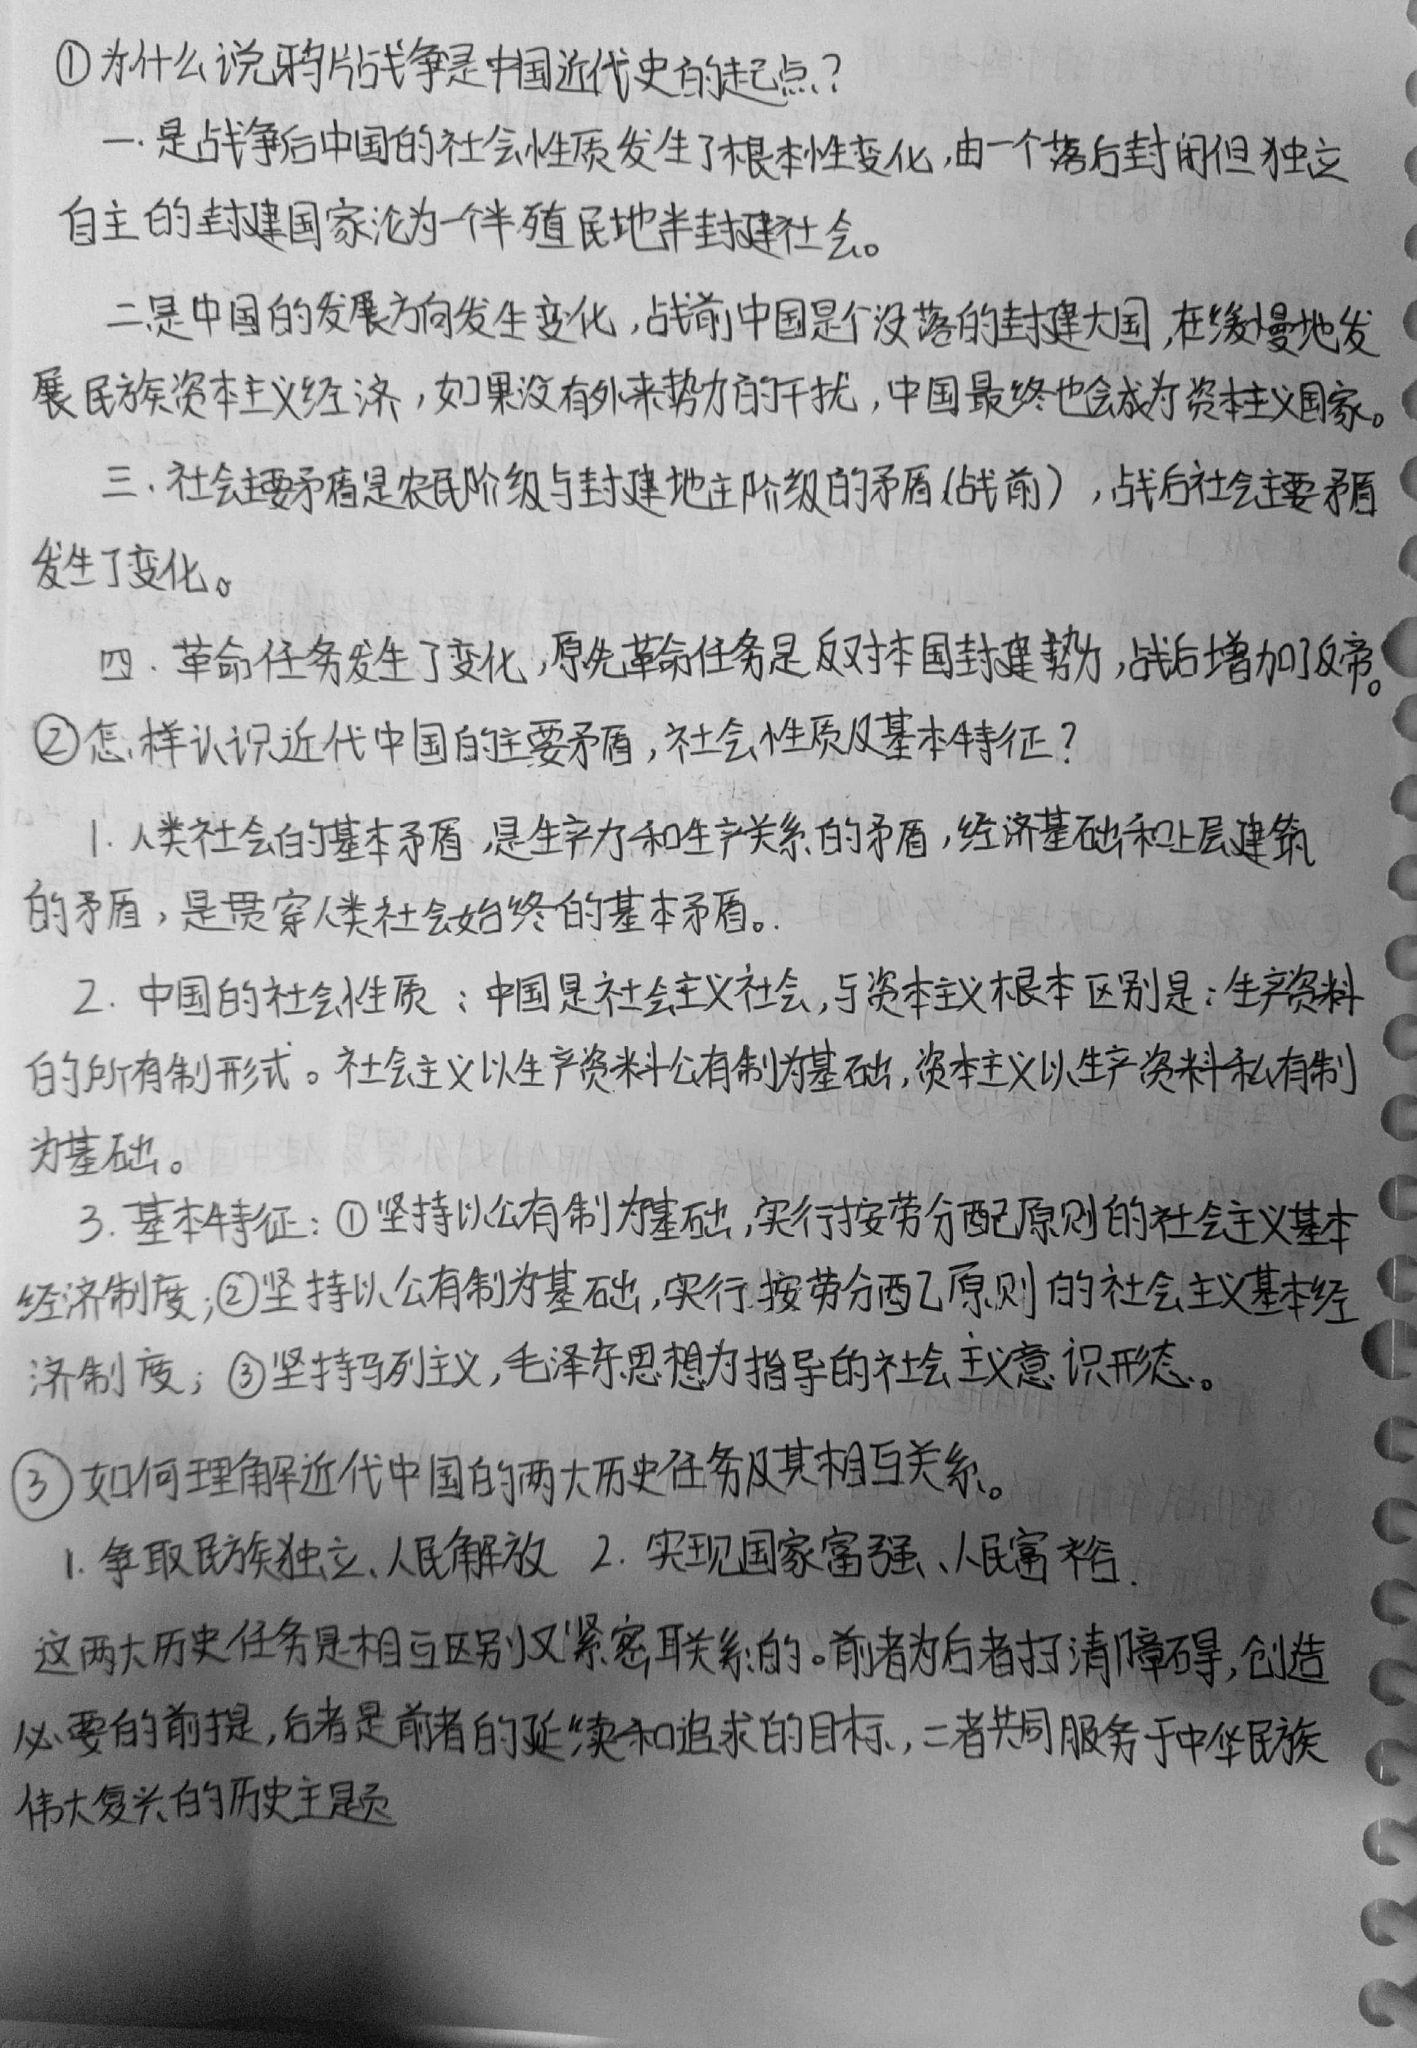 ①为什么说鸦片战争是中国近代史的起点？
一.是战争后中国的社会性质发生了根本性变化，由一个落后封闭但独立
自主的封建国家沦为一个半殖民地半封建社会。
二是中国的发展方向发生变化，战前中国是个没落的封建大国，在缓慢地发
展民族资本主义经济，如果没有外来势力的干扰，中国最终也会成为资本主义国家。
三、社会主要矛盾是农民阶级与封建地主阶级的矛盾（战前），战后社会主要矛盾
发生了变化。
四.革命任务发生了变化，原先革命任务是反对本国封建势力，战后增加了反帝。
②怎样认识近代中国的主要矛盾，社会性质及基本特征？
1.人类社会的基本矛盾，是生产力和生产关系的矛盾，经济基础和上层建筑
的矛盾，是贯穿人类社会始终的基本矛盾。
2.中国的社会性质：中国是社会主义社会，与资本主义根本区别是：生产资料
的所有制形式。社会主义以生产资料公有制为基础，资本主义以生产资料私有制
为基础。
3.基本特征：①坚持以公有制为基础，实行按劳分配原则的社会主义基本
经济制度；②坚持以公有制为基础，实行按劳分配原则的社会主义基本经
济制度；③坚持马列主义，毛泽东思想为指导的社会主义意识形态。
③如何理解近代中国的两大历史任务及其相互关系。
1.争取民族独立、人民解放 2.实现国家富强、人民富裕.
这两大历史任务是相互区别又紧密联系的。前者为后者打清障碍，创造
必要的前提，后者是前者的延续和追求的目标，二者共同服务于中华民族
伟大复兴的历史主题